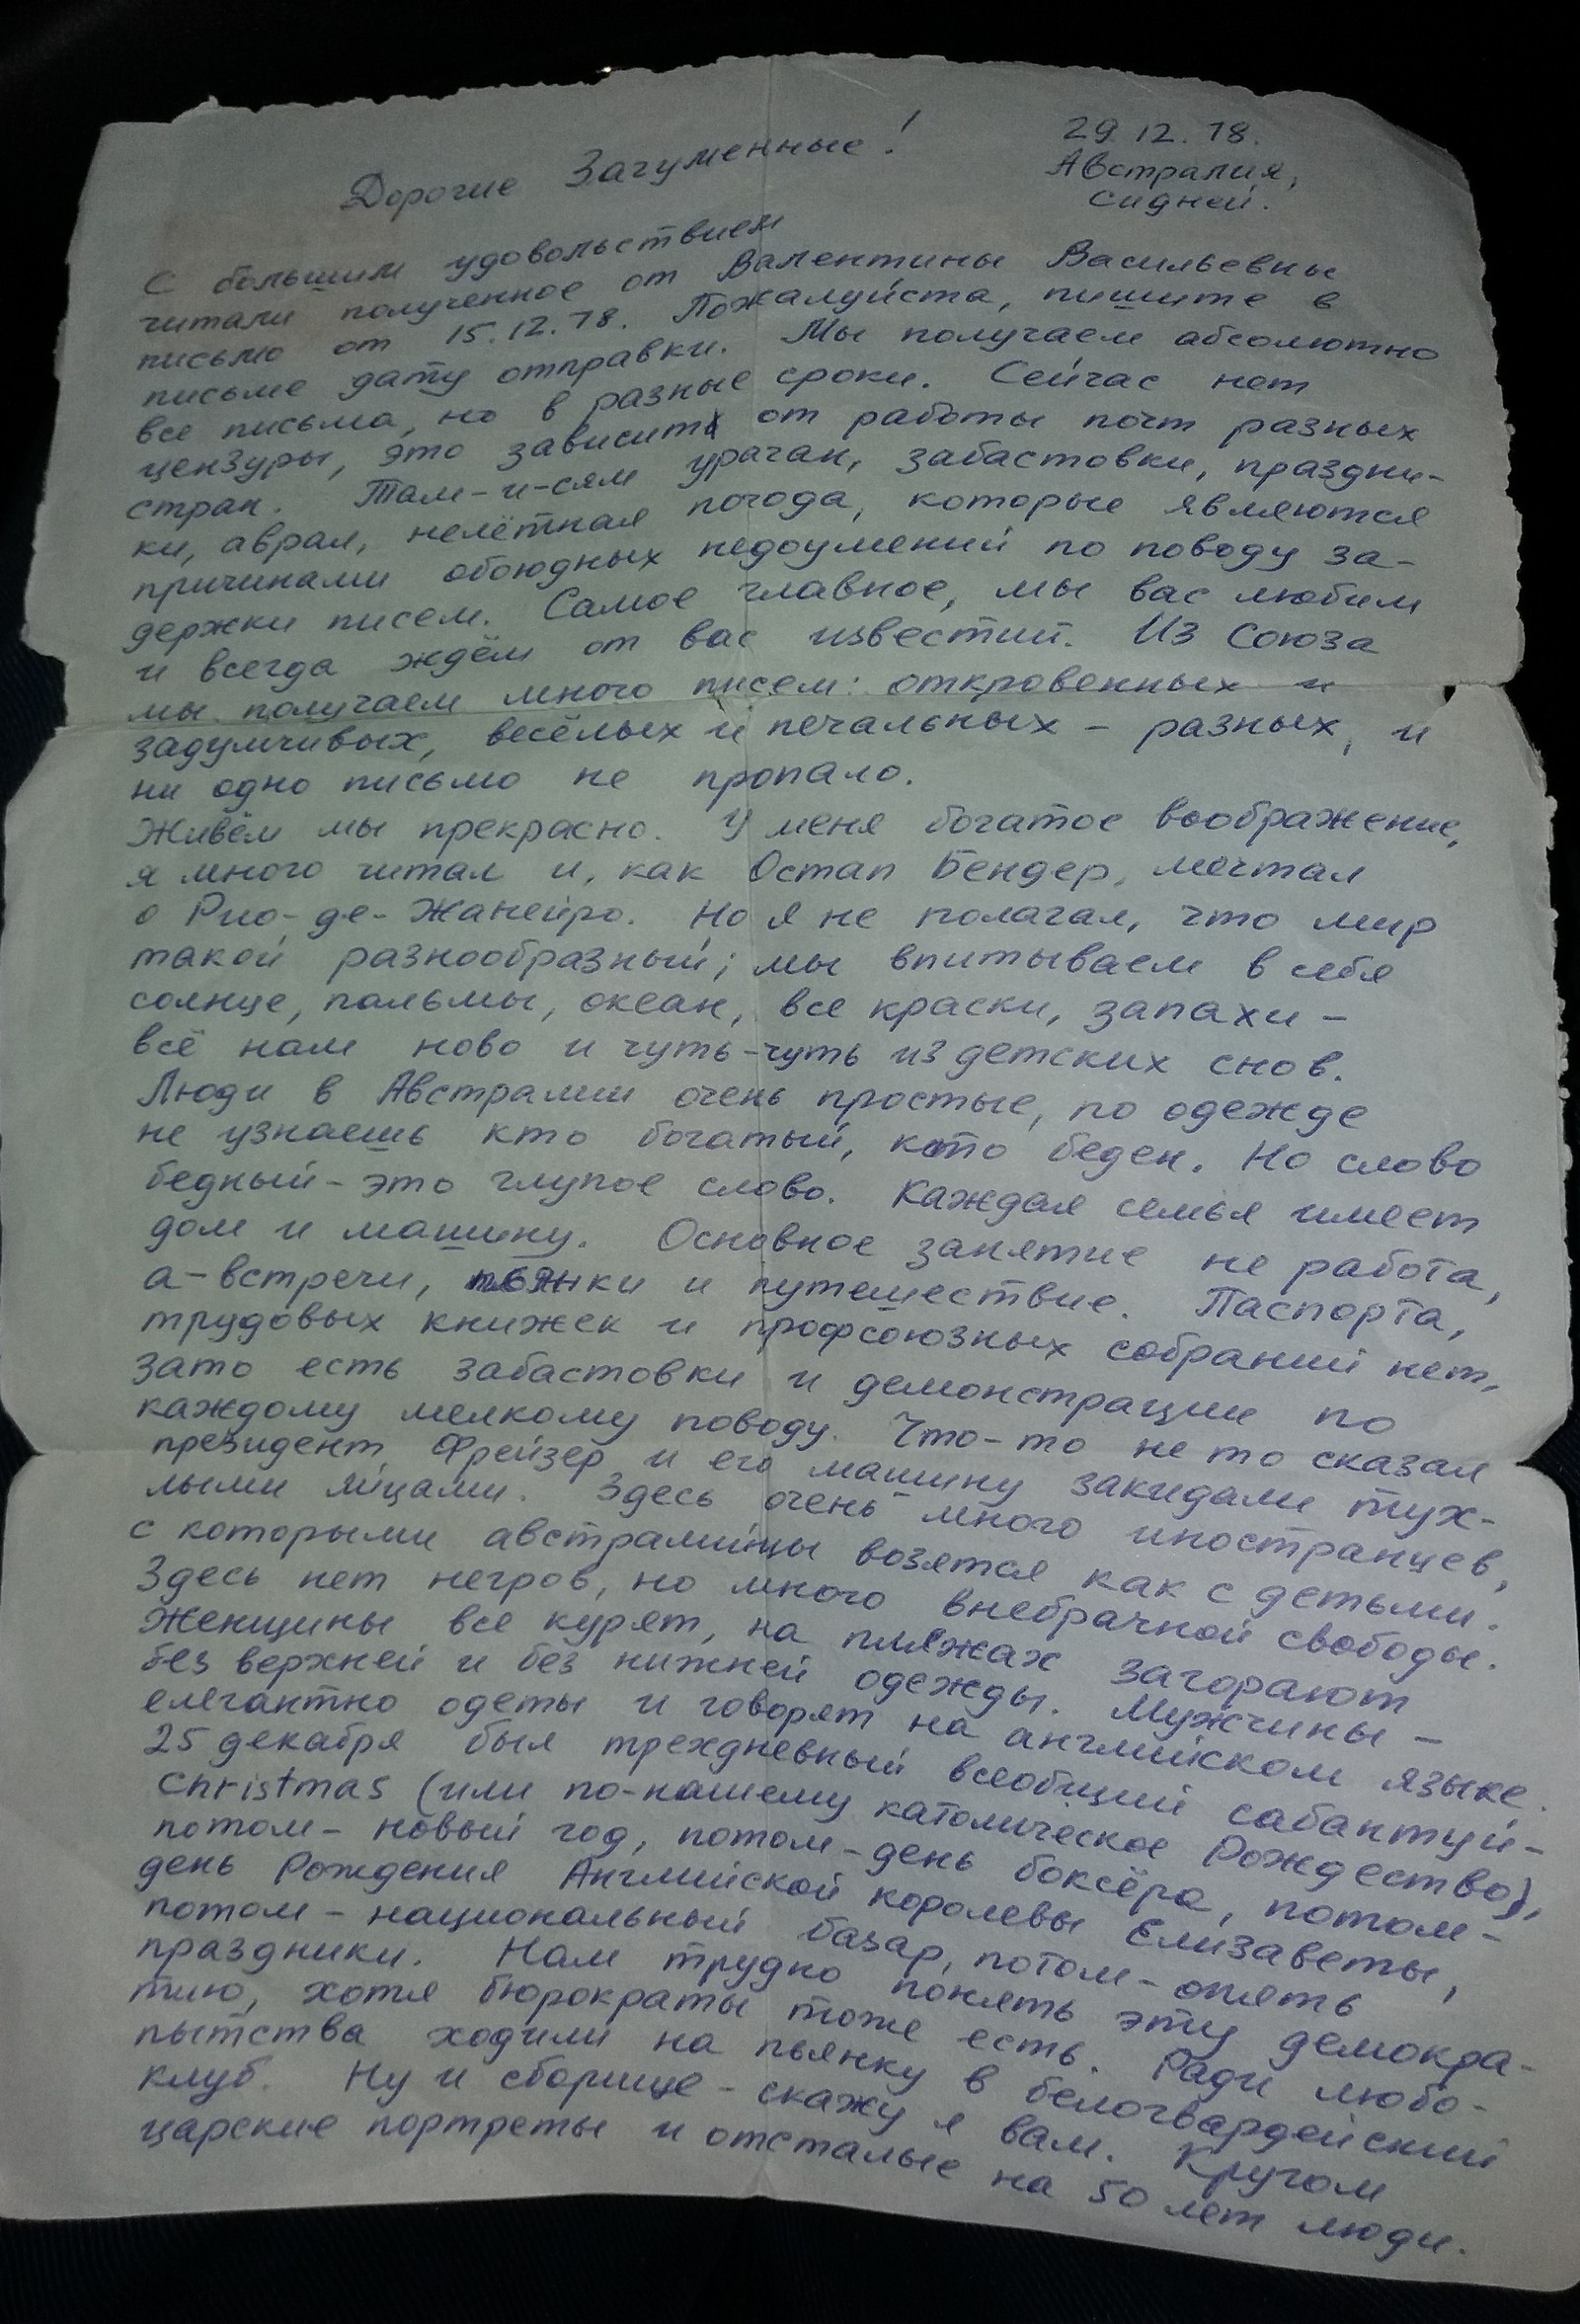 29.12.78.
Австралия,
Сидней.
Дорогие Загуменные!
С большим удовольствием
читали полученное от Валентины Васильевны
письмо от 15.12.78. Пожалуйста, пишите в
письме дату отправки. Мы получаем абсолютно
все письма, но в разные сроки. Сейчас нет
цензуры, это зависит от работы почт разных
стран. Там-и-сям ураган, забастовки, праздни-
ки, аврал, нелётная погода, которые являются
причинами обоюдных недоумений по поводу за-
держки писем. Самое главное, мы вас любим
и всегда ждём от вас известий. Из Союза
мы получаем много писем: откровенных и
задумчивых, весёлых и печальных – разных, и
ни одно письмо не пропало.
Живём мы прекрасно. У меня богатое воображение,
я много читал и, как Остап Бендер, мечтал
о Рио-де-Жанейро. Но я не полагал, что мир
такой разнообразный; мы впитываем в себя
солнце, пальмы, океан, все краски, запахи –
всё нам ново и чуть-чуть из детских снов.
Люди в Австралии очень простые, по одежде
не узнаешь кто богатый, кто беден. Но слово
бедный – это глупое слово. Каждая семья имеет
дом и машину. Основное занятие не работа,
а – встречи, пьянки и путешествие. Паспорта,
трудовых книжек и профсоюзных собраний нет,
зато есть забастовки и демонстрации по
каждому мелкому поводу. Что-то не то сказал
президент Фрейзер и его машину закидали тух-
лыми яйцами. Здесь очень много иностранцев,
с которыми австралийцы возятся как с детьми.
Здесь нет негров, но много внебрачной свободы.
Женщины все курят, на пляжах загорают
без верхней и без нижней одежды. Мужчины –
елегантно одеты и говорят на английском языке.
25 декабря был трехдневный всеобщий сабантуй –
Christmas (или по-нашему католическое Рождество),
потом – новый год, потом – день боксёра, потом –
день Рождения Английской королевы Елизаветы,
потом – национальный базар, потом – опять
праздники. Нам трудно понять эту демокра-
тию, хотя бюрократы тоже есть. Ради любо-
пытства ходили на пьянку в белогвардейский
клуб. Ну и сборище – скажу я вам. Кругом
царские портреты и отсталые на 50 лет люди.